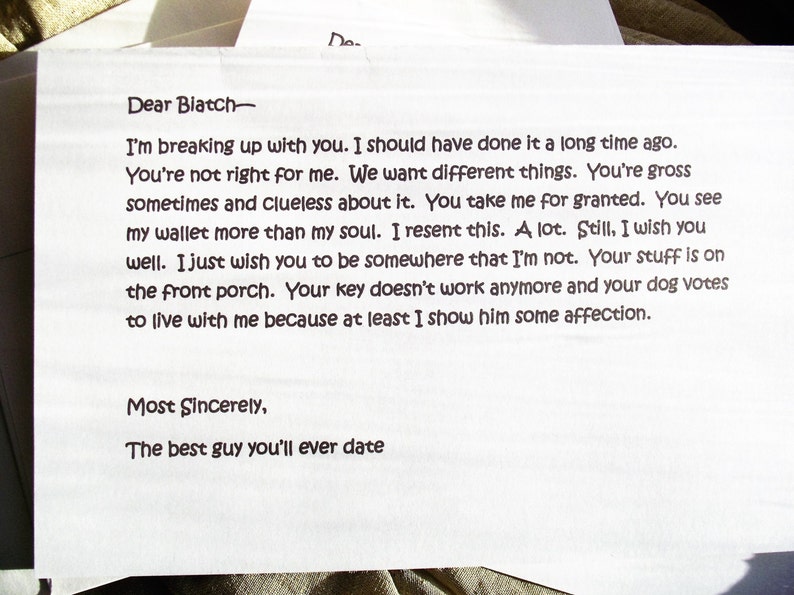 De
Dear Biatch—
I'm breaking up with you. I should have done it a long time ago.
You're not right for me.  We want different things.  You're gross
sometimes and clueless about it.  You take me for granted.  You see
my wallet more than my soul.  I resent this.  A lot.  Still, I wish you
well.  I just wish you to be somewhere that I'm not.  Your stuff is on
the front porch.  Your key doesn't work anymore and your dog votes
to live with me because at least I show him some affection.
Most Sincerely,
The best guy you'll ever date